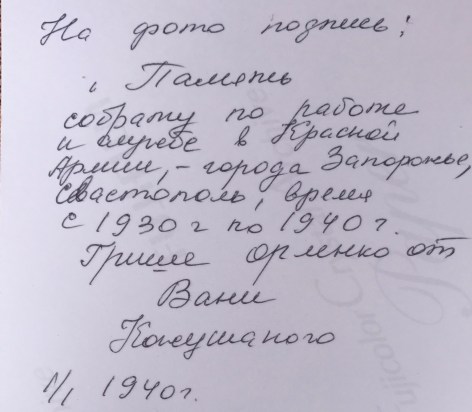 На фото подпись:
„ Память
собрату по работе
и службе в Красной
Армии, - города Запорожье,
Севастополь, время
с 1930 г по 1940 г.
Грише Орленко от
Вани
Кокушаного
1/I 1940г.